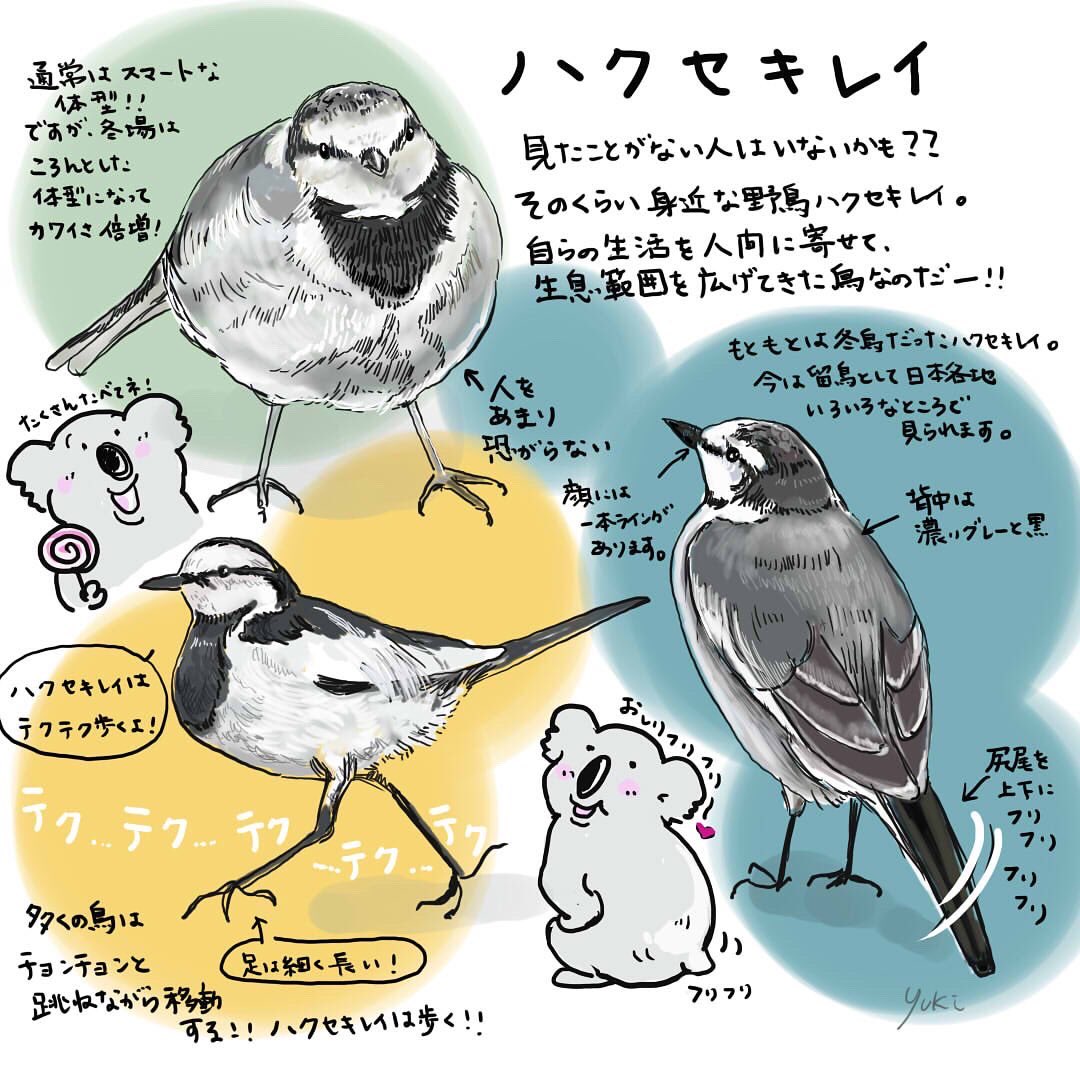 ハクセキレイ
見たことがない人はいないかも??
そのくらい身近な野鳥ハクセキレイ。
自らの生活を人間に寄せて、
生息範囲を広げてきた鳥なのだー!!
通常はスマートな
体型!!
ですが、冬場は
ころんとした
体型になって
カワイさ倍増!
たくさんたべてネ!
人を
あまり
恐がらない
もともとは冬鳥だったハクセキレイ。
今は留鳥として日本各地
いろいろなところで
見られます。
顔には
一本ラインが
あります。
背中は
濃いグレーと黒
ハクセキレイは
テクテク歩くよ!
テク…テク…テク
…テク…テク
おしりフリフリ
フリフリ
尻尾を
上下に
フリ
フリ
フリ
フリ
足は細く長い!
多くの鳥は
チョンチョンと
跳ねながら移動
する!! ハクセキレイは歩く!!
Yuki